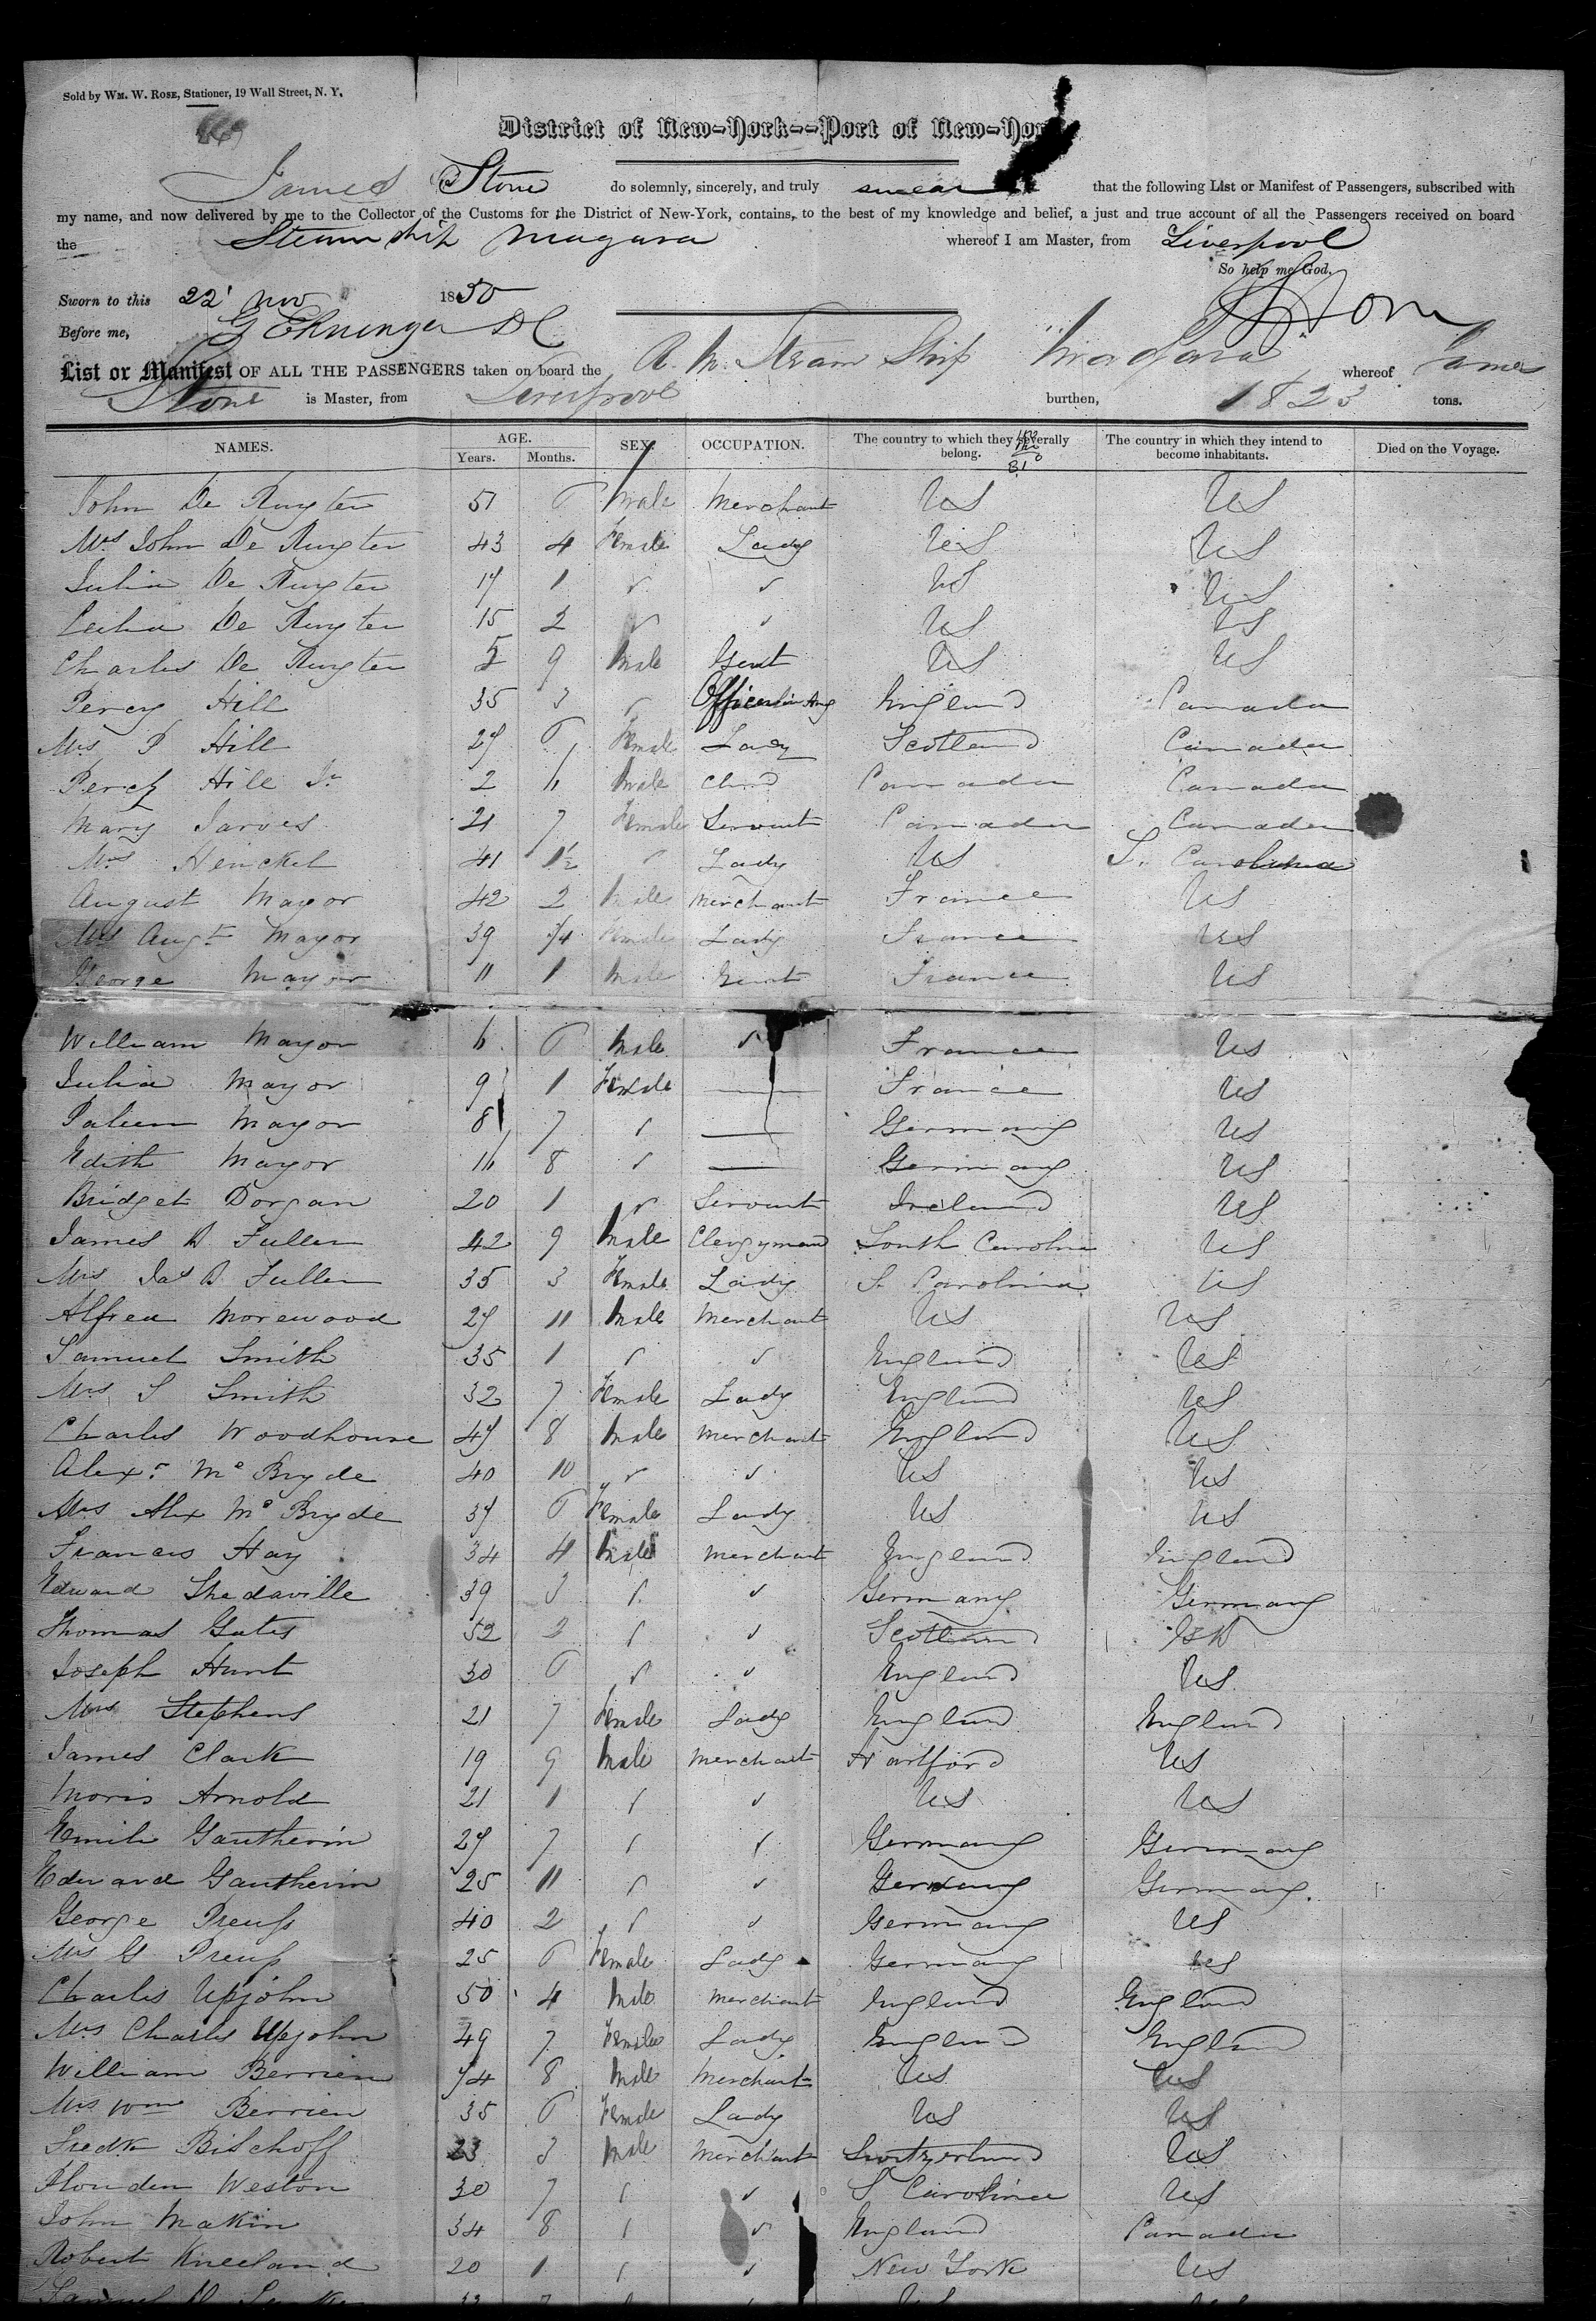 Sold by WM. W. ROSE, Stationer, 19 Wall Street, N. Y.
District of New-York--Port of New-York
James Stone do solemnly, sincerely, and truly swear that the following List or Manifest of Passengers, subscribed with
my name, and now delivered by me to the Collector of the Customs for the District of New-York, contains, to the best of my knowledge and belief, a just and true account of all the Passengers received on board
the Steam ship Niagara whereof I am Master, from Liverpool
So help me God,
Sworn to this 22 Nov 1850
Before me,
List or Manifest OF ALL THE PASSENGERS taken on board the R. M. Steam Ship "Niagara" whereof James
Stone is Master, from Liverpool burthen, 1823 tons.
NAMES. AGE. Years. Months. SEX. OCCUPATION. The country to which they severally belong. The country in which they intend to become inhabitants. Died on the Voyage.
John De Ruyter 51 6 Male Merchant US US
Mrs John De Ruyter 43 4 Female Lady US US
Julia De Ruyter 17 1 " " US US
De Ruyter 15 2 " " US US
Charles De Ruyter 5 9 Male Gent US US
Percy Hill 35 3 " Officer in Army England Canada
Mrs P Hill 27 6 Female Lady Scotland Canada
Percy Hill Jr 2 11 Male Child Canada Canada
Mary Jarves 21 7 Female Servant Canada Canada
Mrs Henckel 41 1½ " Lady US S. Carolina
August Mayor 42 2 Male Merchant France US
Mrs Augt Mayor 39 3/4 Female Lady France US
George Mayor 11 1 Male Gent France US
William Mayor 6 6 Male " France US
Julia Mayor 9 1 Female — France US
Mayor 8 7 " — Germany US
Edith Mayor 8 " — Germany US
Bridget Dorgan 20 1 " Servant Ireland US
James D Fuller 42 9 Male Clergyman South Carolina US
Mrs Jas D Fuller 35 3 Female Lady S. Carolina US
Alfred Morewood 27 11 Male Merchant US US
Samuel Smith 35 1 " " England US
Mrs S Smith 32 7 Female Lady England US
Charles Woodhouse 47 8 Male Merchant England US
Alexr McBryde 40 10 " " US US
Mrs Alex McBryde 37 6 Female Lady US US
Francis Hay 34 4 Male Merchant England England
Edward Shedaville 39 3 " " Germany Germany
Thomas Gates 52 2 " " Scotland
Joseph Hunt 30 6 " " England US
Mrs Stephens 21 7 Female Lady England England
James Clark 19 9 Male Merchant Hartford US
Moris Arnold 21 1 " " US US
Emile Gautherin 27 7 " " Germany Germany
Edward Gautherin 25 11 " " Germany Germany
George Preuss 40 2 " " Germany US
Mrs G Preuss 25 6 Female Lady Germany US
Charles Upjohn 50 4 Male Merchant England England
Mrs Charles Upjohn 49 7 Female Lady England England
William Berrien 74 8 Male Merchant US US
Mrs Wm Berrien 35 6 Female Lady US US
Fredk Bischoff 23 3 Male Merchant Switzerland US
Plowden Weston 30 7 " " S Carolina US
John Makin 34 8 " " England Canada
Robert Kneeland 20 1 " " New York US
Samuel